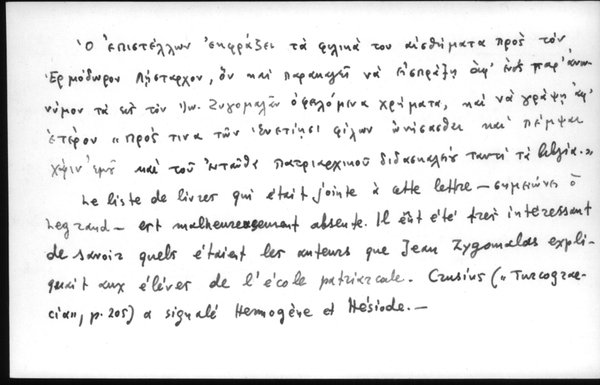 Ὁ ἐπιστέλλων ἐκφράζει τὰ φιλικά του αἰσθήματα πρὸς τὸν
Ἑρμόδωρον Λήσταρχον, ὃν καὶ παρακαλεῖ νὰ εἰσπράξῃ ἀφ' ἑνὸς παρ' ἀνω-
νύμου τὰ εἰς τὸν Ἰω. Ζυγομαλᾶν ὀφειλόμενα χρήματα, καὶ νὰ γράψῃ ἀφ'
ἑτέρου « πρός τινα τῶν Ἐνετίῃσι φίλων ὠνίσασθαι καὶ πέμψαι
χάριν ἐμῆς καὶ τοῦ ἐνταῦθα πατριαρχικοῦ διδασκαλείου ταυτὶ τὰ βιβλία. »
Le liste de livres qui était jointe à cette lettre — σημειώνει ὁ
Legrand — est malheureusement absente. Il eût été très intéressant
de savoir quels étaient les auteurs que Jean Zygomalas expli-
quait aux élèves de l'école patriarcale. Crusius (« Turcograe-
cia », p. 205) a signalé Hermogène et Hésiode. —